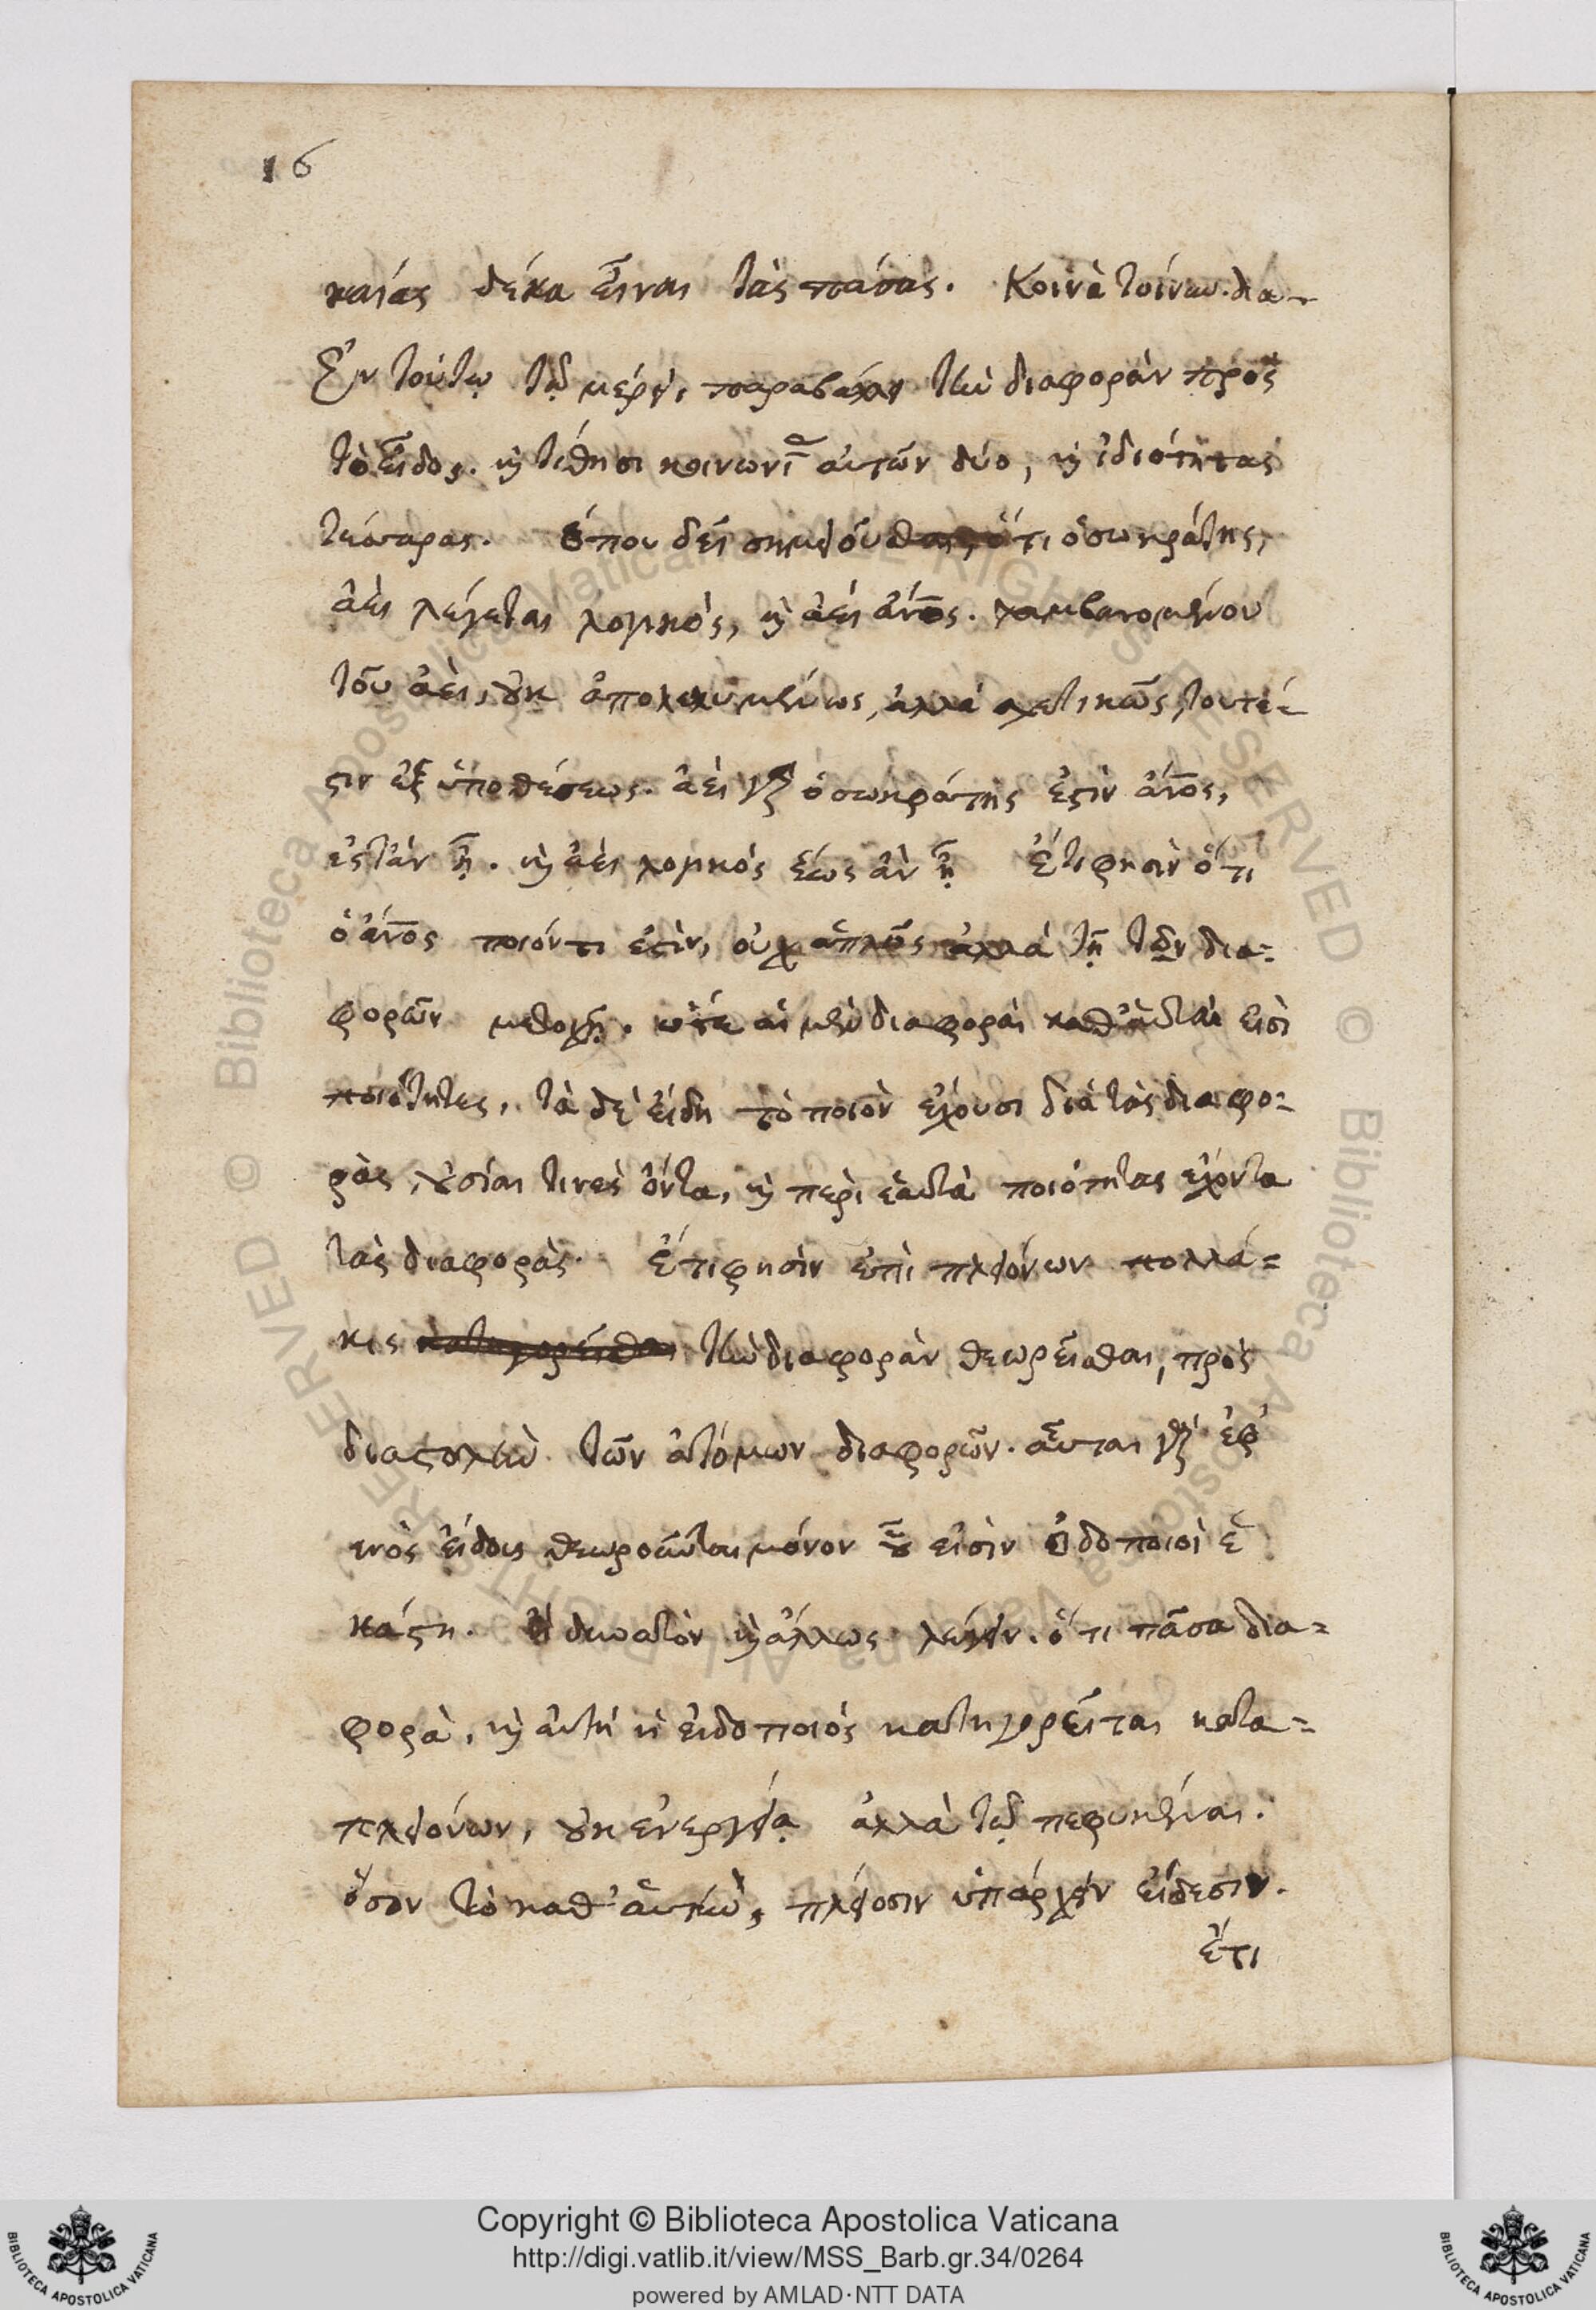 16
καίας δέκα εἶναι τὰς πάσας. Κοινὰ τοίνυν δια-
Ἐν τούτῳ τῷ μέρει παραβάλλει τὴν διαφορὰν πρὸς
τὸ εἶδος. καὶ τίθησι κοινωνί αὐτῶν δύο, καὶ ἰδιότητας
τέσσαρας. ὅπου δεῖ σημειοῦσθαι, ὅτι ὁ σωκράτης,
ἀεὶ λέγεται λογικός, καὶ ἀεὶ ἄνος. λαμβανομένου
τοῦ ἀεὶ, οὐκ ἀπολελυμένως, ἀλλὰ σχετικῶς, τουτέ-
στιν ἐξ ὑποθέσεως. ἀεὶ γὰρ ὁ σωκράτης ἐστὶν ἄνος,
ἐστὰν ᾖ. καὶ ἀεὶ λογικός ἕως ἂν ᾖ Ἔτι φησὶν ὅτι
ὁ ἄνος ποιόν τι ἐστὶν, οὐχ ἁπλῶς ἀλλὰ τῇ τῶν δια=
φορῶν μεθοχῇ. αἱ μὲν διαφοραὶ καθ' αὑτὰς εἰσὶ
ποιότητες, τὰ δὲ εἴδη τὸ ποιὸν ἔχουσι διὰ τὰς διαφο=
ρὰς, οὐσίαι τινὲς ὄντα, καὶ περὶ ἑαυτὰ ποιότητας ἔχοντα
τὰς διαφορὰς. Ἔτι φησὶν ἐπὶ πλειόνων πολλά=
κις κατηγορεῖσθαι τὴν διαφορὰν θεωρεῖσθαι, πρὸς
διαστολὴν τῶν ἀτόμων διαφορῶν. αὗται γὰρ ἐφ'
ἑνὸς εἴδους θεωροῦνται μόνον οὗ εἰσὶν εἰδοποιοὶ ἑ
κάστη. ἢ δυνατὸν καὶ ἄλλως λέγειν. ὅτι πᾶσα δια=
φορὰ, καὶ αὐτὴ ἡ εἰδοποιός κατηγορεῖται κατα=
πλειόνων, οὐκ ἐνεργείᾳ ἀλλὰ τῷ πεφυκέναι.
ὅσον τὸ καθ' αὑτὴν, πλείοσιν ὑπάρχειν εἴδεσιν.
ἔτι
Copyright © Biblioteca Apostolica Vaticana
http://digi.vatlib.it/view/MSS_Barb.gr.34/0264
powered by AMLAD·NTT DATA